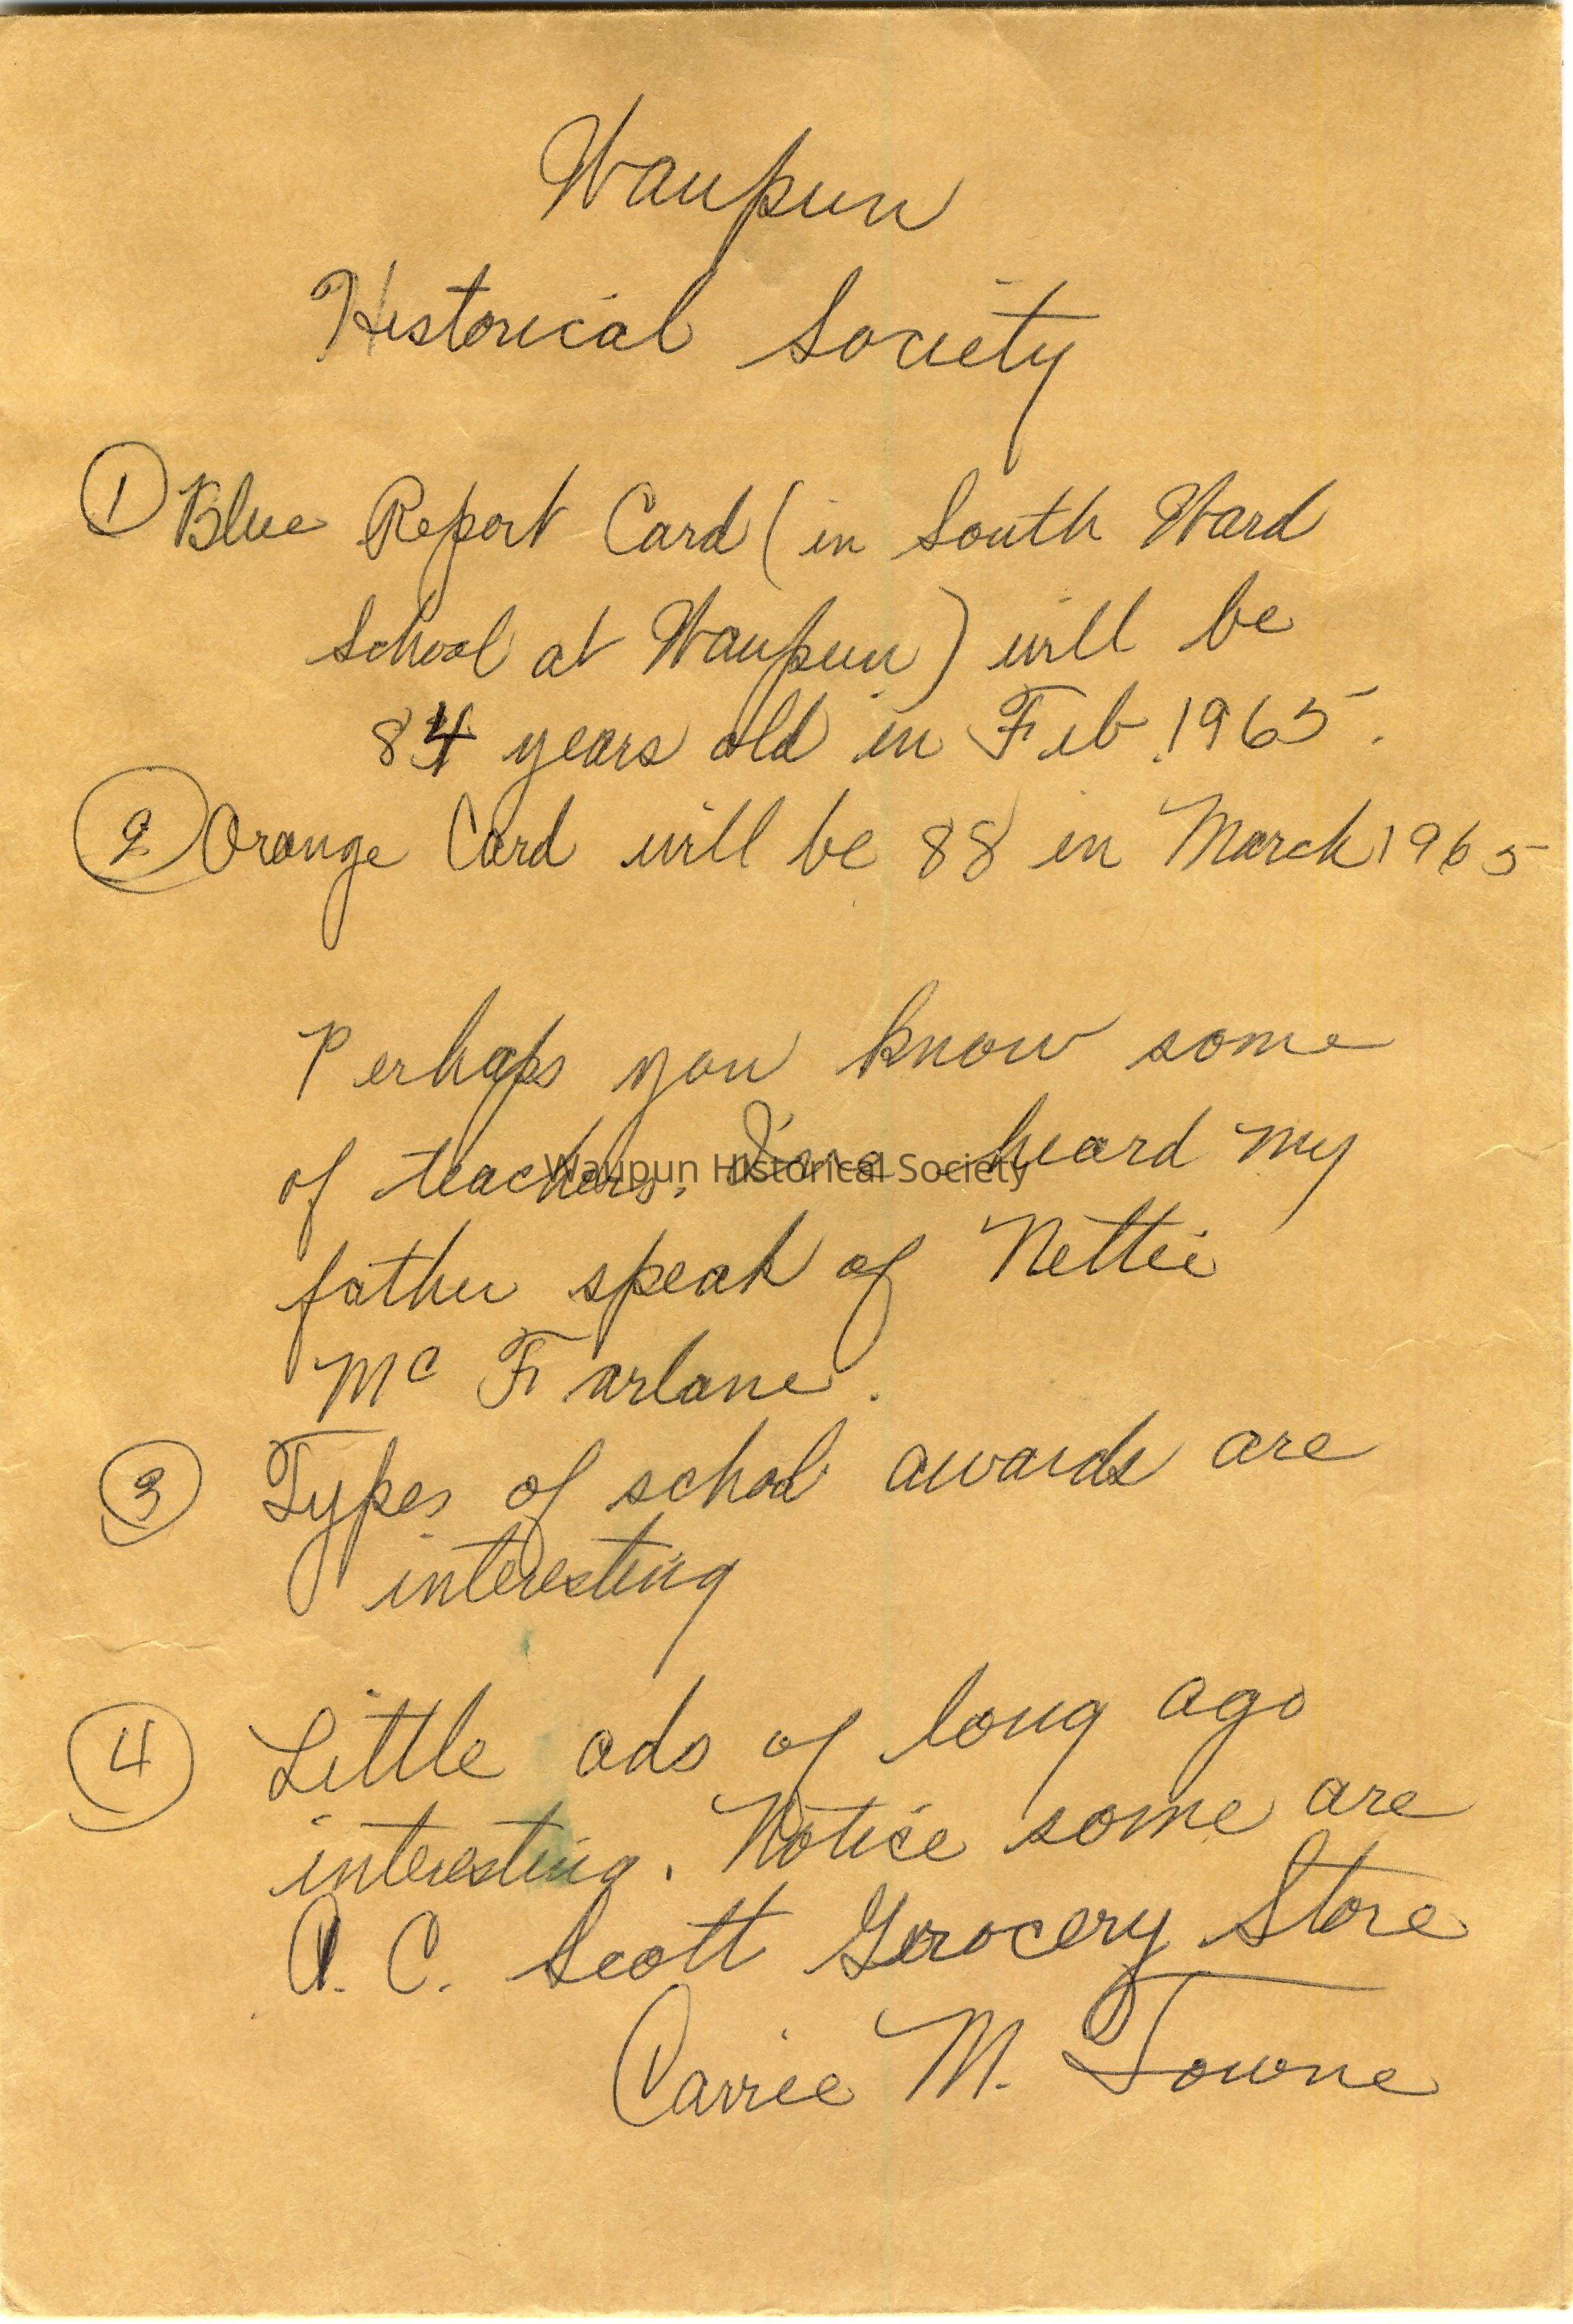 Waupun
Historical Society
① Blue Report Card (in South Ward
School at Waupun) will be
84 years old in Feb. 1965.
② Orange Card will be 88 in March 1965
Perhaps you know some
of teachers. I've heard my
Waupun Historical Society
father speak of Nettie
Mc Farlane.
③ Types of school awards are
interesting
④ Little ads of long ago
interesting. Notice some are
A. C. Scott Grocery Store
Carrie M. Towne